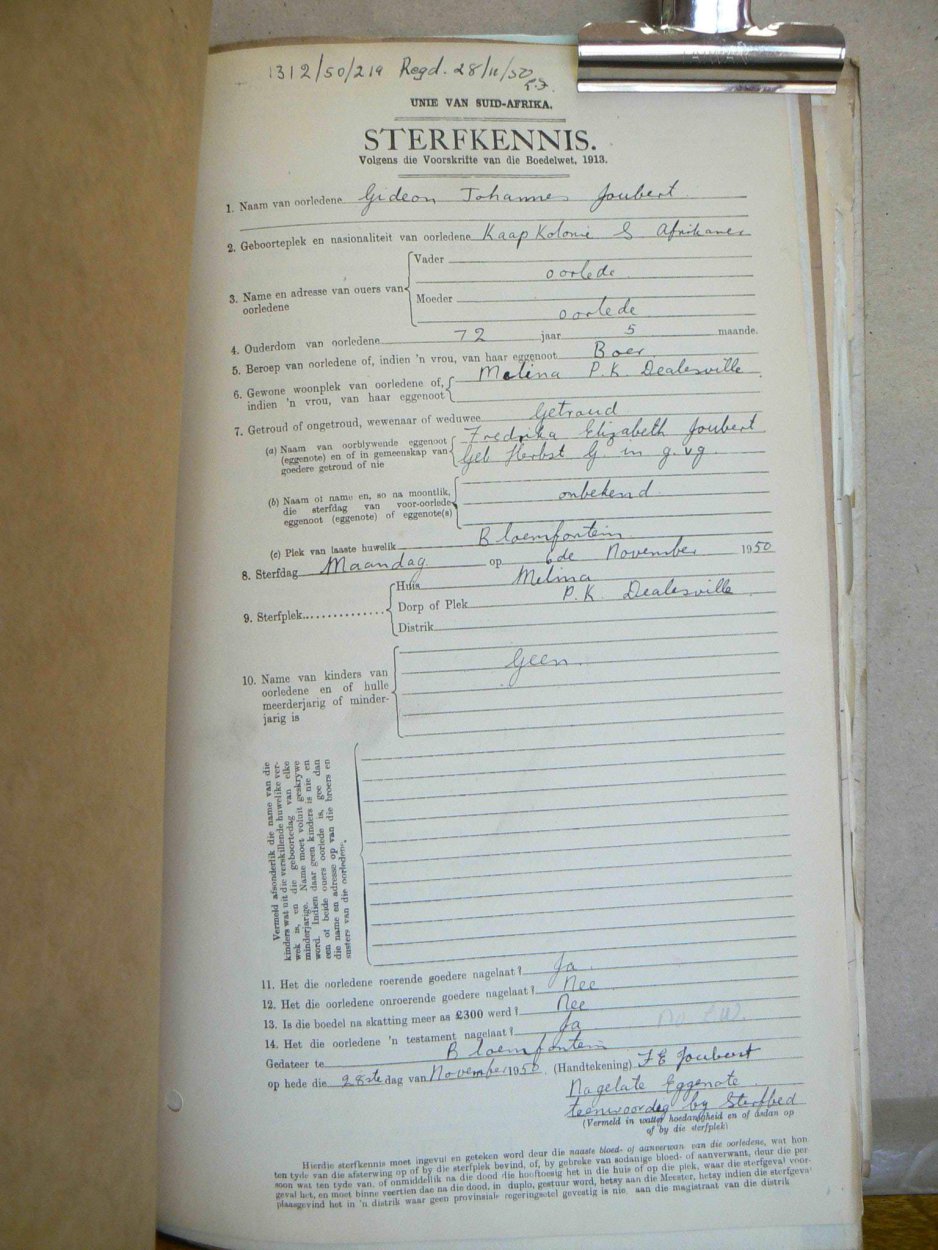 1312/50/219 Regd. 28/11/50
UNIE VAN SUID-AFRIKA.
STERFKENNIS.
Volgens die Voorskrifte van die Boedelwet, 1913.
1. Naam van oorledene Gideon Johannes Joubert
2. Geboorteplek en nasionaliteit van oorledene Kaap Kolonie S Afrikaner
3. Name en adresse van ouers van oorledene
Vader
oorlede
Moeder
oorlede
4. Ouderdom van oorledene 72 jaar 5 maande.
5. Beroep van oorledene of, indien 'n vrou, van haar eggenoot Boer
6. Gewone woonplek van oorledene of, indien 'n vrou, van haar eggenoot
Melina P.K. Dealesville
7. Getroud of ongetroud, wewenaar of weduwee Getroud
(a) Naam van oorblywende eggenoot (eggenote) en of in gemeenskap van goedere getroud of nie
Fredrika Elizabeth Joubert
Geb Herbst G. in g. vg.
(b) Naam of name en, so na moontlik, die sterfdag van voor-oorlede eggenoot (eggenote) of eggenote(s)
onbekend
(c) Plek van laaste huwelik Bloemfontein
8. Sterfdag Maandag op 6de November 1950
9. Sterfplek
Huis Melina
Dorp of Plek P.K. Dealesville
Distrik
10. Name van kinders van oorledene en of hulle meerderjarig of minderjarig is
Geen
Vermeld afsonderlik die name van die
kinders wat uit die verskillende huwelike ver-
wek is, en die geboortedag van elke
minderjarige. Name moet voluit geskrywe
word. Indien daar geen kinders is nie en
een of beide ouers oorlede is, gee dan
die name en adresse op van die broers en
susters van die oorledene.
11. Het die oorledene roerende goedere nagelaat? Ja
12. Het die oorledene onroerende goedere nagelaat? Nee
13. Is die boedel na skatting meer as £300 werd? Nee
14. Het die oorledene 'n testament nagelaat? Ja
Gedateer te Bloemfontein
op hede die 28ste dag van November 1950 (Handtekening) F E Joubert
Nagelate Eggenote
teenwoordig by Sterfbed
(Vermeld in watter hoedanigheid en of dadan op
of by die sterfplek)
Hierdie sterfkennis moet ingevul en geteken word deur die naaste bloed- of aanverwan van die oorledene, wat hon
ten tyde van die afsterwing op of by die sterfplek bevind, of, by gebreke van sodanige bloed- of aanverwant, deur die per
soon wat ten tyde van, of onmiddellik na die dood die hooftoesig het in die huis of op die plek, waar die sterfgeval voor-
geval het, en moet binne veertien dae na die dood, in duplo, gestuur word, hetsy aan die Meester, hetsy indien die sterfgeva
plaasgevind het in 'n distrik waar geen provinsiale regeringsetel gevestig is nie, aan die magistraat van die distrik